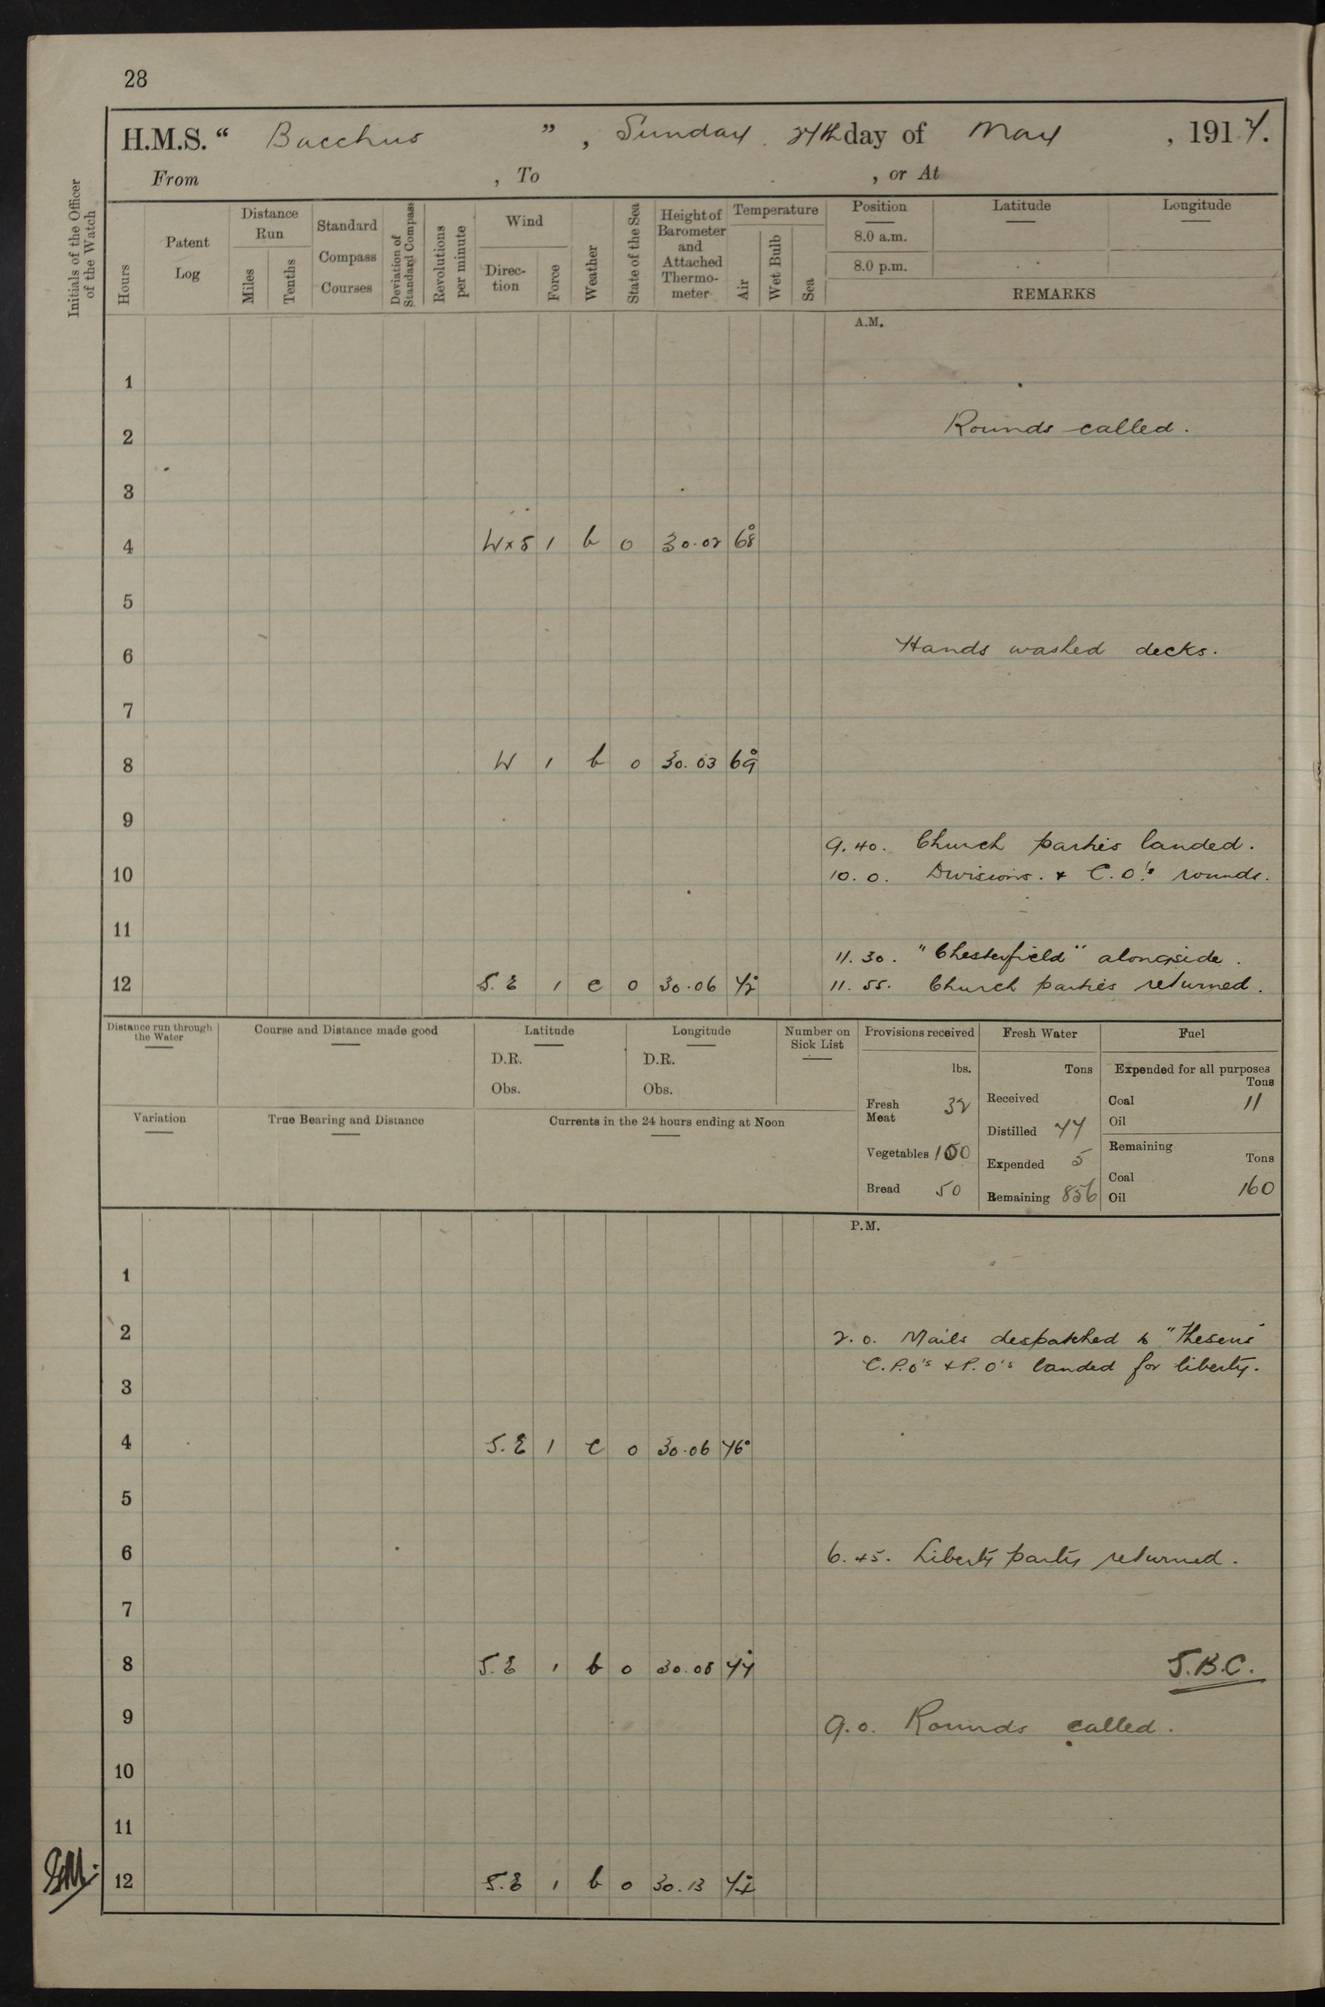 28
H.M.S. " Bacchus ", Sunday 27th day of May, 1917.
From , To , or At
Initials of the Officer of the Watch
Hours
Patent Log
Distance Run
Miles
Tenths
Standard Compass Courses
Deviation of Standard Compass
Revolutions per minute
Wind
Direc-tion
Force
Weather
State of the Sea
Height of Barometer and Attached Thermo-meter
Temperature
Air
Wet Bulb
Sea
Position
Latitude
Longitude
8.0 a.m.
8.0 p.m.
REMARKS
A.M.
1
2 Rounds called.
3
4 W x S 1 b 0 30.02 68°
5
6 Hands washed decks.
7
8 W 1 b 0 30.03 69°
9
9.40. Church parties landed.
10 10.0. Divisions. & C.O's rounds.
11
11.30. "Chesterfield" alongside.
12 S.E 1 c 0 30.06 72° 11.55. Church parties returned.
Distance run through the Water
Course and Distance made good
Latitude
D.R.
Obs.
Longitude
D.R.
Obs.
Number on Sick List
Provisions received
lbs.
Fresh Meat 32
Vegetables 100
Bread 50
Fresh Water
Tons
Received
Distilled 77
Expended 5
Remaining 856
Fuel
Expended for all purposes
Tons
Coal 11
Oil
Remaining
Tons
Coal 160
Oil
Variation
True Bearing and Distance
Currents in the 24 hours ending at Noon
P.M.
1
2 2.0. Mails despatched to "Theseus"
C.P.O's & P.O's landed for liberty.
3
4 S.E 1 c 0 30.06 76°
5
6 6.45. Liberty party returned.
7
8 S.E 1 b 0 30.08 77° S.B.C.
9 9.0. Rounds called.
10
11
12 S.E 1 b 0 30.13 74°